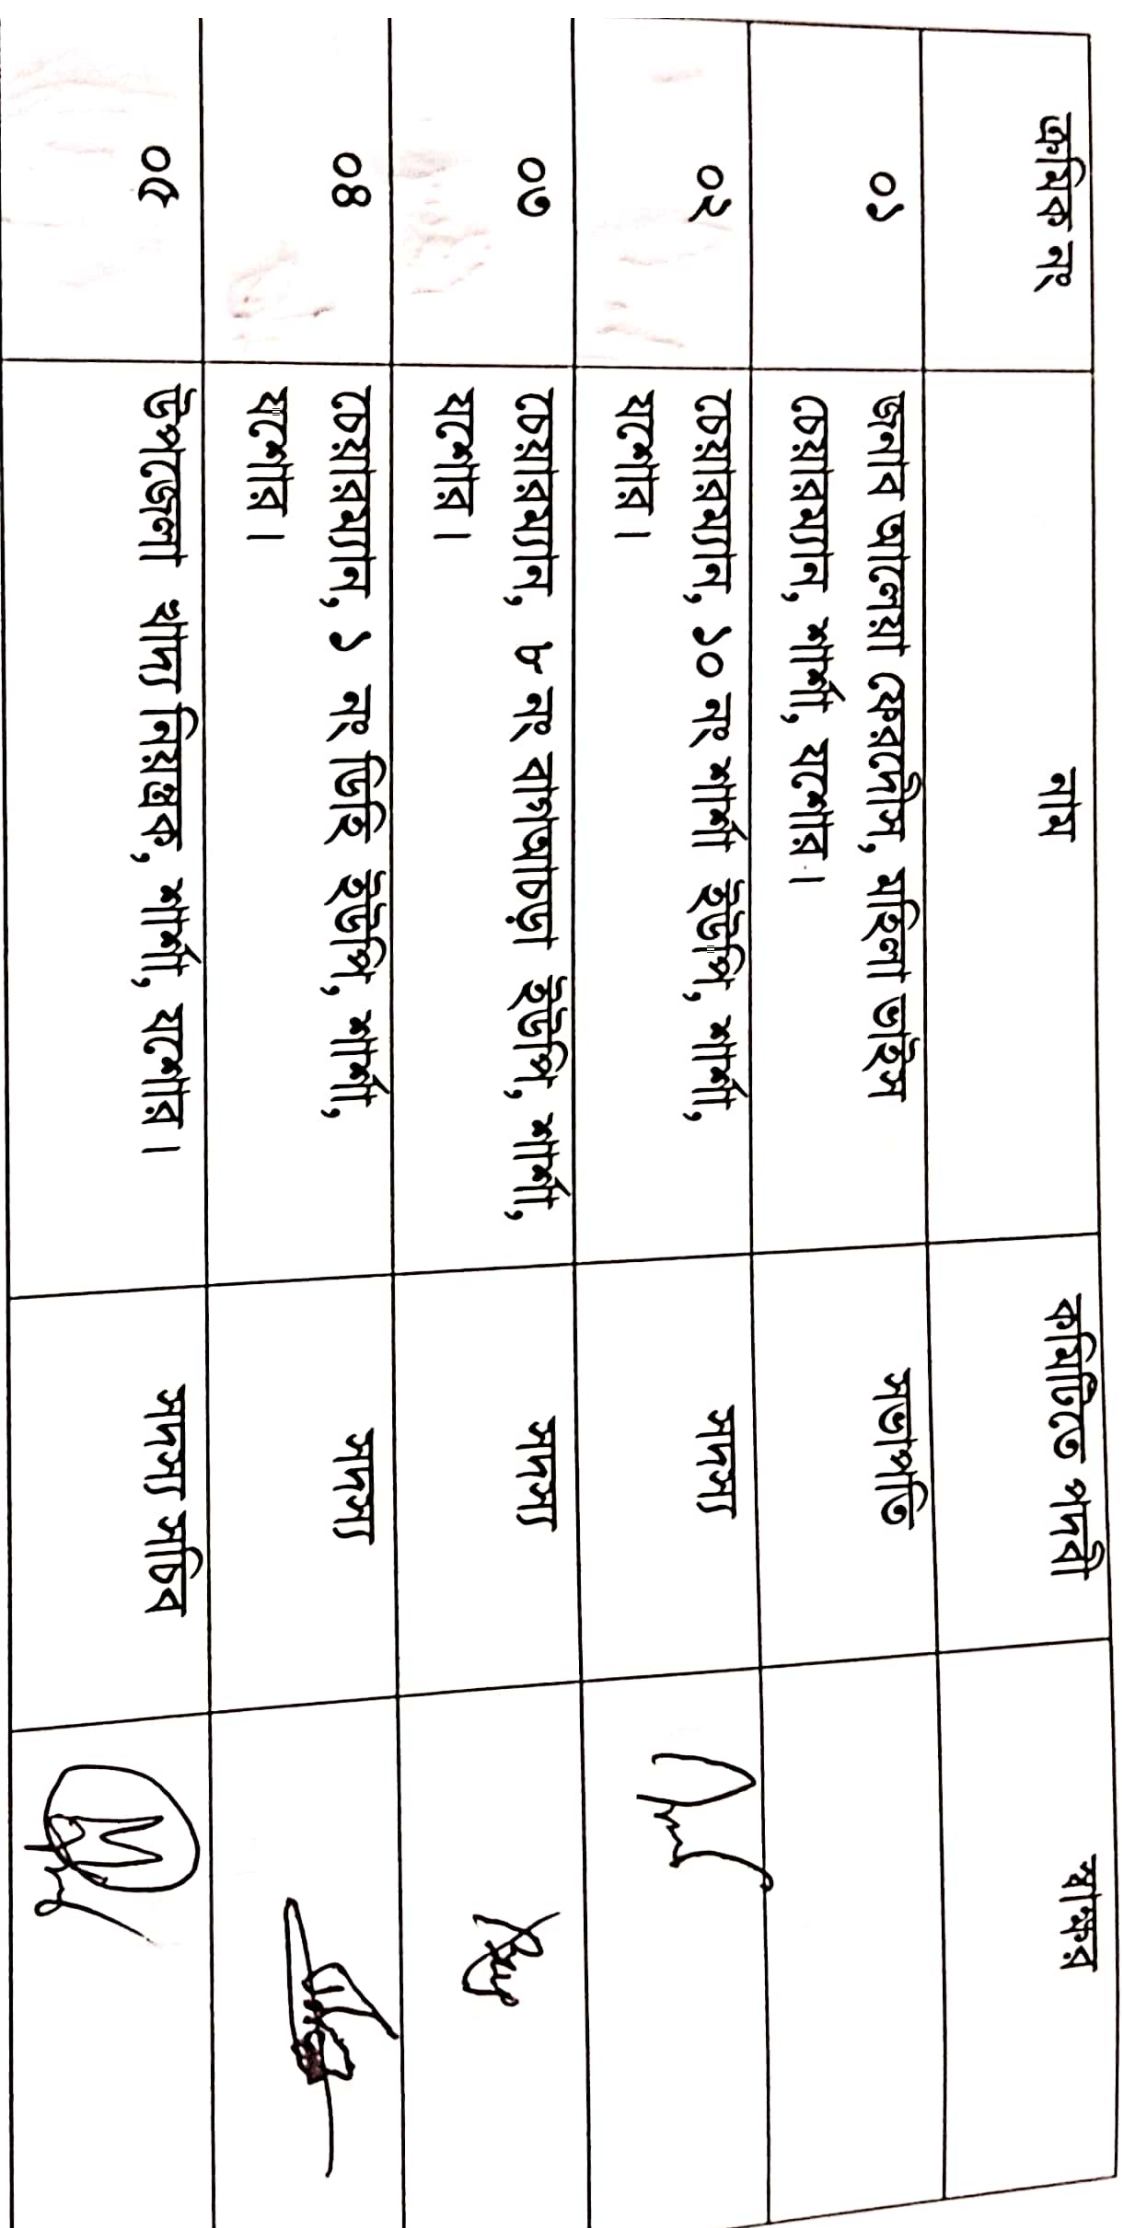 ক্রমিক নং
নাম
কমিটিতে পদবী
স্বাক্ষর
০১
জনাব আলেয়া ফেরদৌস, মহিলা ভাইস
চেয়ারম্যান, শার্শা, যশোর।
সভাপতি
০২
চেয়ারম্যান, ১০ নং শার্শা ইউপি, শার্শা,
যশোর।
সদস্য
০৩
চেয়ারম্যান, ৮ নং বাগআচড়া ইউপি, শার্শা,
যশোর।
সদস্য
০৪
চেয়ারম্যান, ১ নং ডিহি ইউপি, শার্শা,
যশোর।
সদস্য
০৫
উপজেলা খাদ্য নিয়ন্ত্রক, শার্শা, যশোর।
সদস্য সচিব